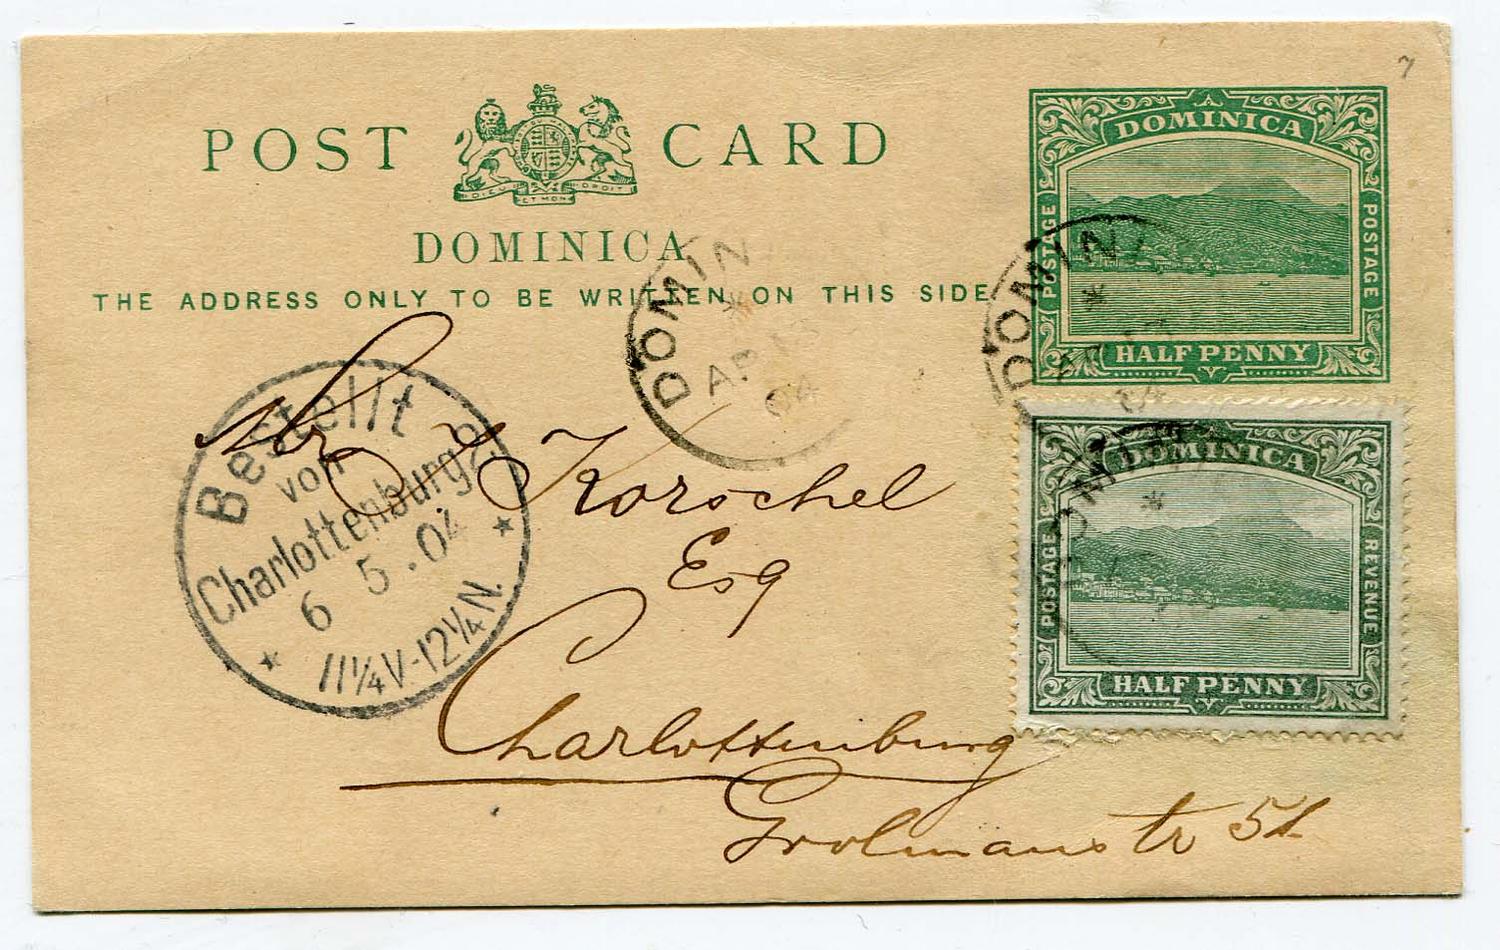 7
POST CARD
DIEU ET MON DROIT
DOMINICA
THE ADDRESS ONLY TO BE WRITTEN ON THIS SIDE
DOMINICA
POSTAGE
POSTAGE
HALF PENNY
DOMIN
*
AP 13
04
DOMINI
*
AP 13
04
DOMINICA
POSTAGE
REVENUE
HALF PENNY
DOMINI
*
Bestellt
von
Charlottenburg 2
6 5.04
* 11¼V-12¼N. *
Mr Korschel
Esq
Charlottenburg
Grolmanstr 51